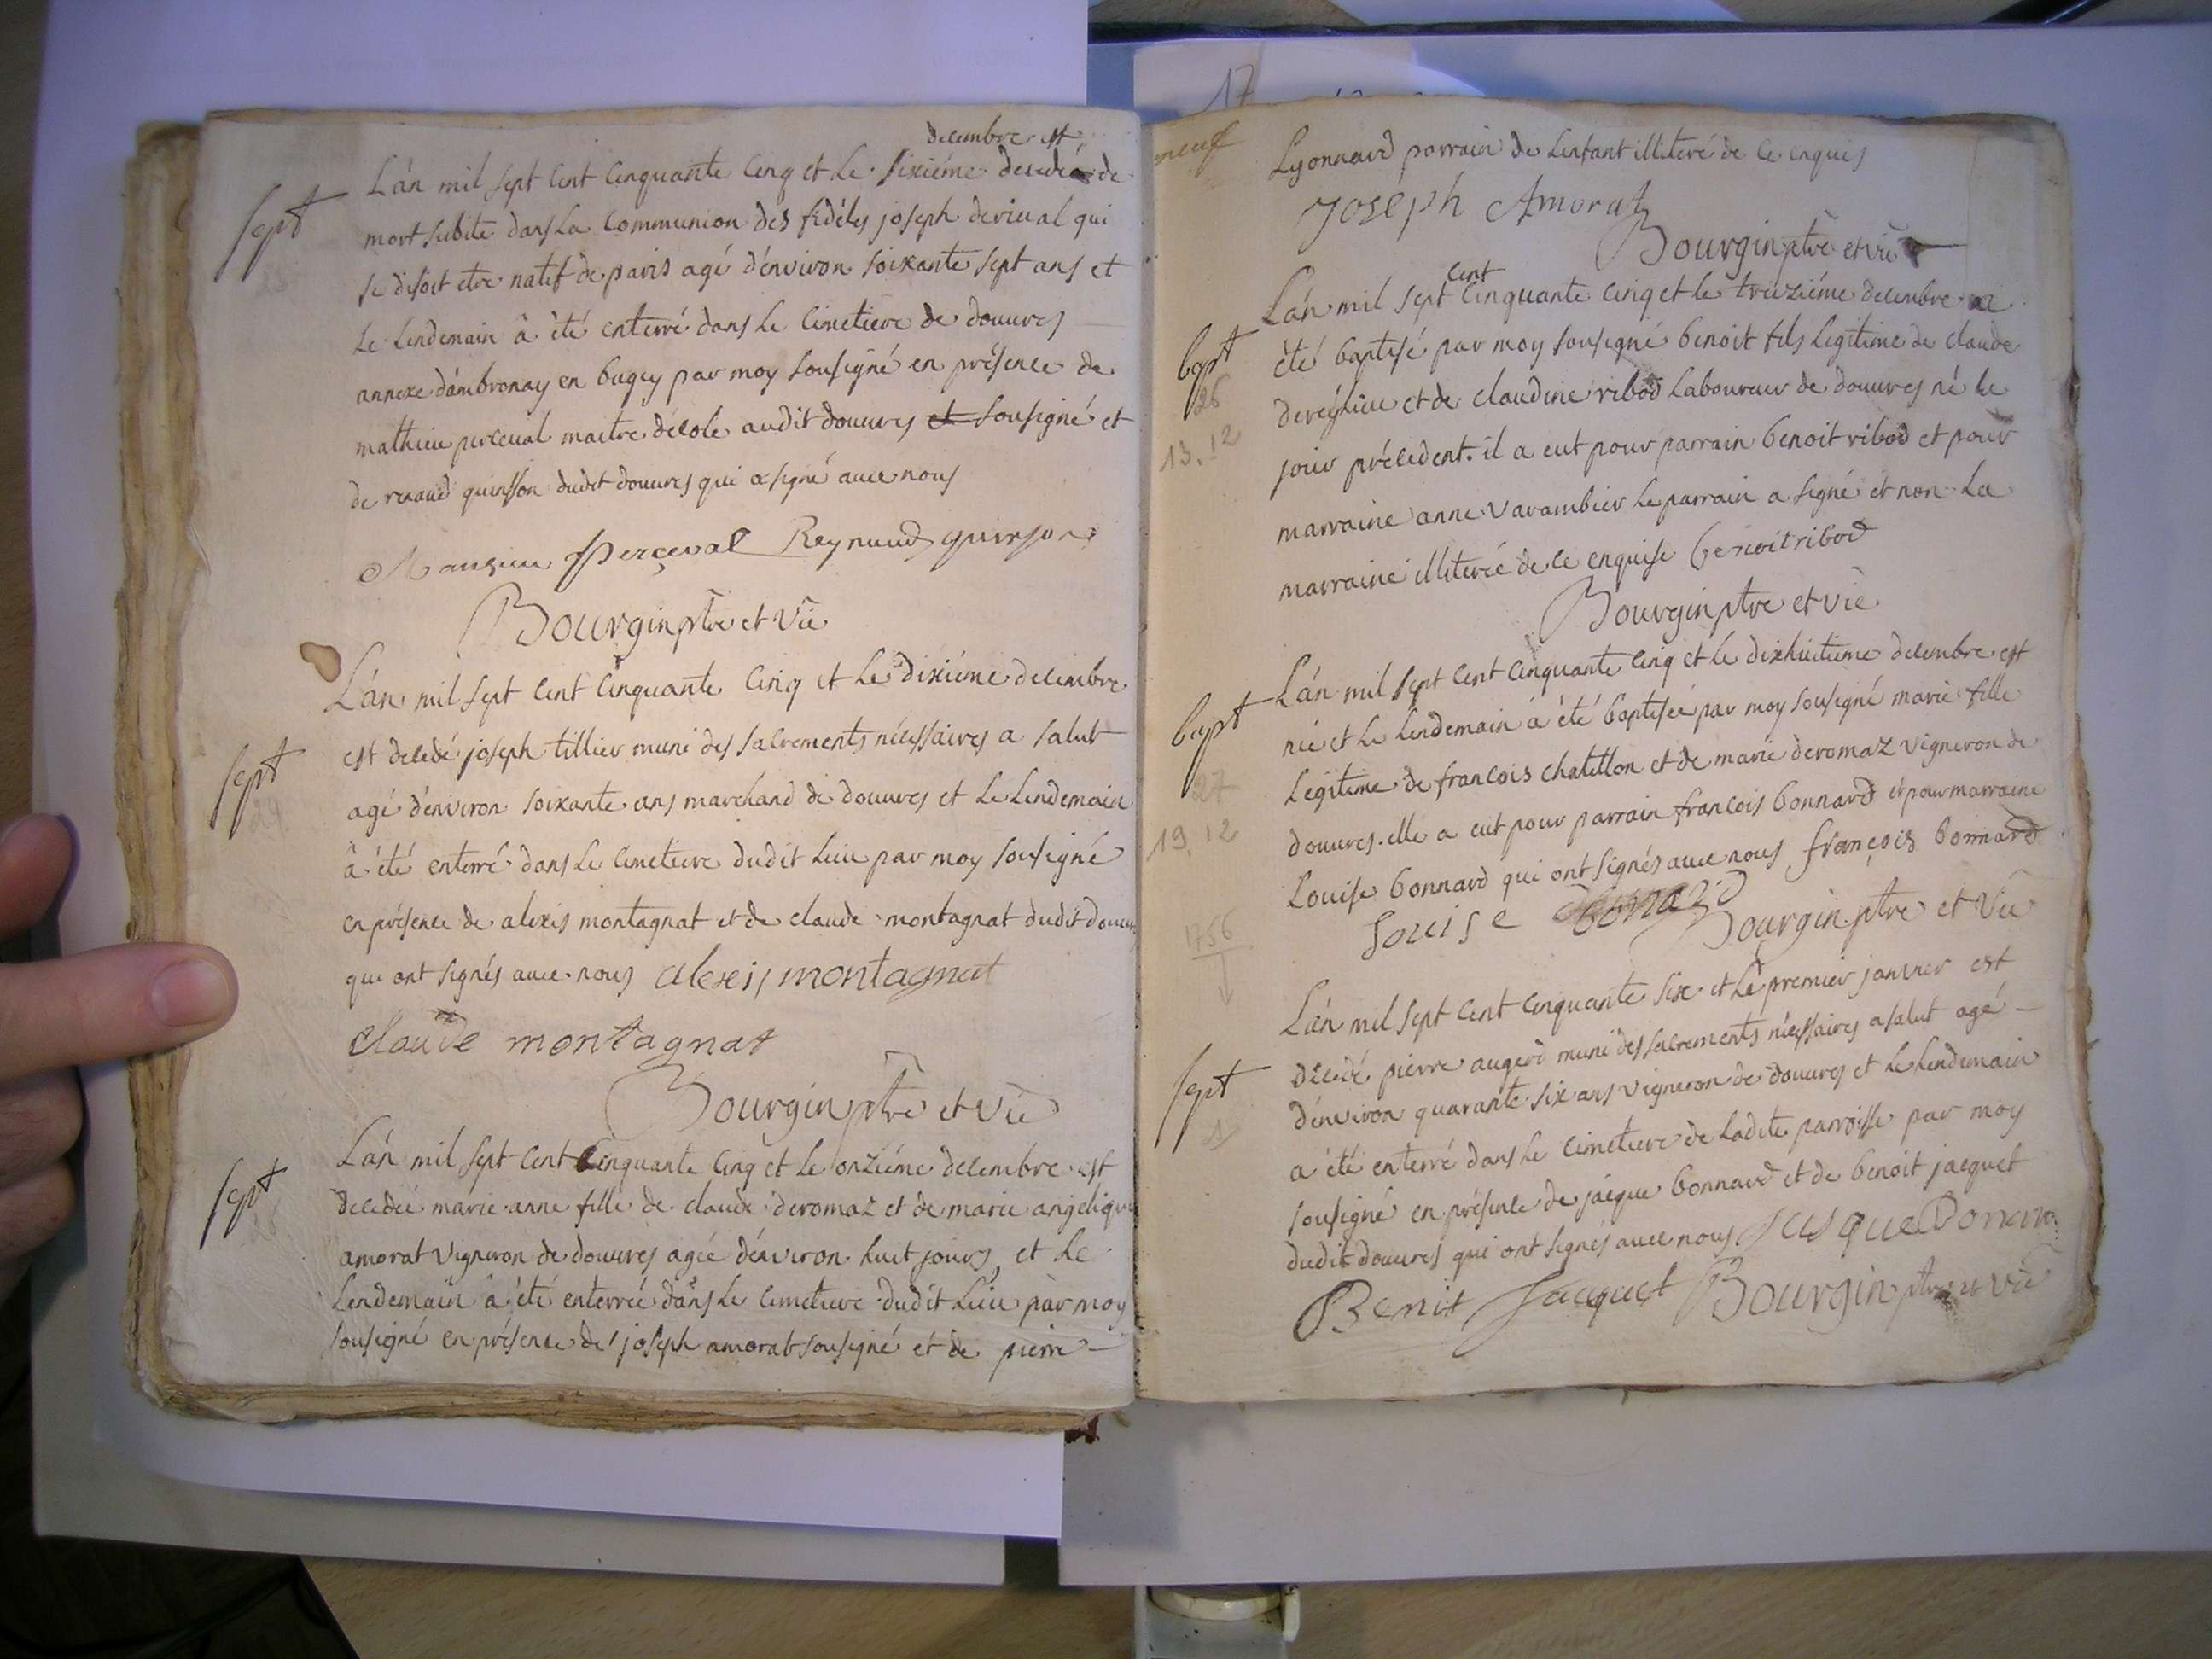 decembre est
L'an mil sept cent cinquante cinq et le sixiéme decedé de
sept
mort subite dans la communion des fidéles joseph derival qui
se disoit etre natif de paris agé d'environ soixante sept ans et
le lendemain â été enterré dans le cimetiere de douvres
annexe d'ambronay en bugey par moy sousigné en présence de
mathieu perceval maitre d'école audit douvres et sousigné et
de renaud quinsson dudit douvres qui a signé avec nous
Perceval Reynaud quinson
Bourgin ptre et vic
L'an mil sept cent cinquante cinq et le dixiéme decembre
est decedé joseph tillier muni des sacrements nécessaires a salut
sept
24
agé d'environ soixante ans marchand de douvres et le lendemain
â été enterré dans le cimetiere dudit lieu par moy sousigné
en présence de alexis montagnat et de claude montagnat dudit douv
qui ont signés avec nous alexis montagnat
claude montagnat
Bourgin ptre et vic
L'an mil sept cent cinquante cinq et le onziéme decembre est
sept
decedée marie anne fille de claude deromaz et de marie angeliqu
amorat vigneron de douvres agée d'environ huit jours et le
lendemain â été enterrée dans le cimetiere dudit lieu par moy
sousigné en présence de joseph amorat sousigné et de pierre
17
neuf
Lyonnard parrain de l'enfant illiteré de ce enquis
Joseph Amorat
Bourgin ptre et vic
cent
L'an mil sept cinquante cinq et le treiziéme decembre a
bapt
26
13.12
été baptisé par moy sousigné benoit fils legitime de claude
dereylieu et de claudine ribod laboureur de douvres né le
jour précedent. il a eut pour parrain benoit ribod et pour
marraine anne varambier le parrain a signé et non la
marraine illiterée de ce enquise benoit ribod
Bourgin ptre et vic
L'an mil sept cent cinquante cinq et le dixhuitieme decembre est
bapt
27
19.12
née et le lendemain â été baptisée par moy sousigné marie fille
legitime de francois chatillon et de marie deromaz vigneron de
douvres. elle a eut pour parrain francois bonnard et pour marraine
louise bonnard qui ont signés avec nous françois bonnard
louise bonard Bourgin ptre et vic
1756
L'an mil sept cent cinquante six et le premier janvier est
sept
1
décedé pierre augerd muni des sacrements nécessaires a salut agé
d'environ quarante six ans vigneron de douvres et le lendemain
a été enterré dans le cimetiere de ladite parroisse par moy
sousigné en présence de jacque bonnard et de benoit jacquet
dudit douvres qui ont signés avec nous
Benit Jacquet Bourgin ptre et vic